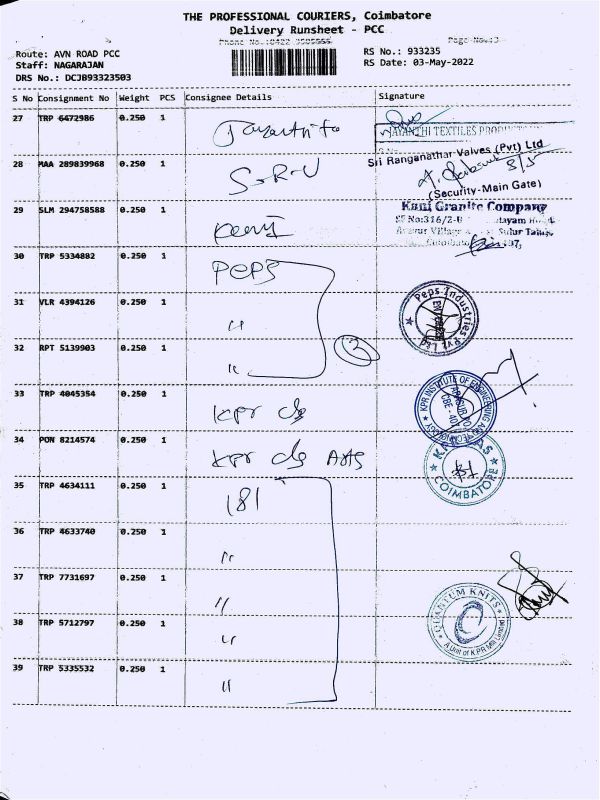 THE PROFESSIONAL COURIERS, Coimbatore
Delivery Runsheet - PCC
Phone No.:0422 Page No.:3
Route: AVN ROAD PCC RS No.: 933235
Staff: NAGARAJAN RS Date: 03-May-2022
DRS No.: DCJB93323503
S No Consignment No Weight PCS Consignee Details Signature
27 TRP 6472986 0.250 1
28 MAA 289839968 0.250 1 S.R.V Sri Ranganathar Valves (Pvt) Ltd
(Security-Main Gate)
29 SLM 294758588 0.250 1 Kani Granite Company
SF No:316/2-B
30 TRP 5334882 0.250 1 PEPS
31 VLR 4394126 0.250 1 " Peps Industries Pvt Ltd
32 RPT 5139903 0.250 1 " 2
33 TRP 4045354 0.250 1 Kpr clg KPR INSTITUTE OF ENGINEERING AND TECHNOLOGY
34 PON 8214574 0.250 1 Kpr clg Arts COIMBATORE
35 TRP 4634111 0.250 1 181
36 TRP 4633740 0.250 1 "
37 TRP 7731697 0.250 1 " QUANTUM KNITS
38 TRP 5712797 0.250 1 " A Unit of K.P.R Mill Limited
39 TRP 5335532 0.250 1 "